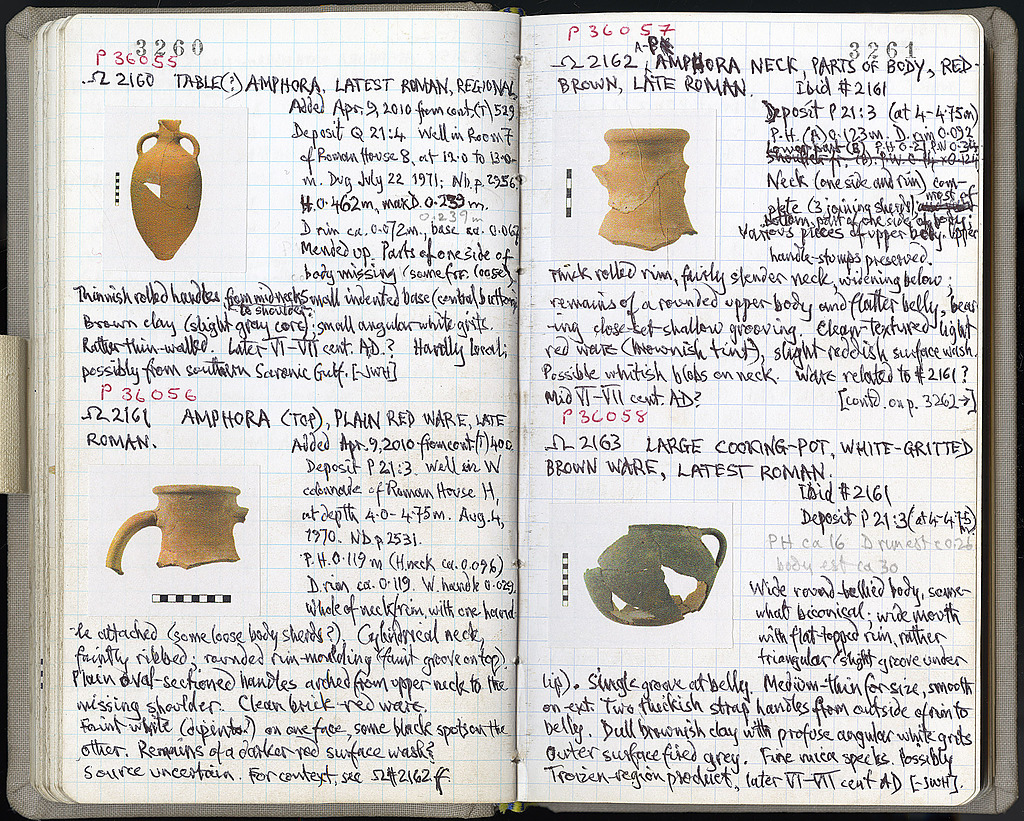 3260
P 36055
Ω 2160 TABLE(?) AMPHORA, LATEST ROMAN, REGIONAL
Added Apr. 9, 2010 from cont. (T) 529
Deposit Q 21:4. Well in Room 7
of Roman House 8, at 12.0 to 13.0
m. Dug July 22 1971; Nb. p. 2956
H. 0.462m, max D. 0.239 m.
0.239m
D rim ca. 0.072m, base ca. 0.062
Mended up. Parts of one side of
body missing (some frr. loose)
Thinnish rolled handles from midneck small indented base (central button)
to shoulder.
Brown clay (slight grey core); small angular white grits.
Rather thin-walled. Later VI-VII cent. AD.? Hardly local;
possibly from southern Saronic Gulf. [-JWH]
P 36056
Ω 2161 AMPHORA (TOP), PLAIN RED WARE, LATE
ROMAN.
Added Apr. 9, 2010 from cont. (T) 400.
Deposit P 21:3. Well in W
colonnade of Roman House H,
at depth 4.0-4.75m. Aug. 4,
1970. Nb p 2531.
P.H. 0.119 m (H. neck ca. 0.096)
D. rim ca. 0.119. W. handle 0.029.
Whole of neck/rim, with one hand-
-le attached (some loose body sherds?). Cylindrical neck,
faintly ribbed; rounded rim-moulding (faint groove on top).
Plain oval-sectioned handles arched from upper neck to the
missing shoulder. Clean brick-red ware.
Faint white (dipinto?) on one face, some black spots on the
other. Remains of a darker-red surface wash?
Source uncertain. For context, see Ω#2162 ff
P 36057
3261
A-B
Ω 2162, AMPHORA NECK, PARTS OF BODY, RED-
BROWN, LATE ROMAN. Ibid #2161
Deposit P 21:3 (at 4-4.75m)
P.H. (A) 0.123m. D. rim 0.092
Lower part (B). P.H. 0.21 P.W. 0.34
Neck (one side and rim) com-
plete (3 joining sherds), most of
bottom part of one side of body;
Various pieces of upper body. Upper
handle-stumps preserved.
Thick rolled rim, fairly slender neck, widening below;
remains of a rounded upper body and flatter belly, bear-
ing close-set shallow grooving. Clean-textured light
red ware (brownish tint), slight reddish surface wash.
Possible whitish blobs on neck. Ware related to #2161?
Mid VI-VII cent. AD? [contd. on p. 3262→]
P 36058
Ω 2163 LARGE COOKING-POT, WHITE-GRITTED
BROWN WARE, LATEST ROMAN.
Ibid #2161
Deposit P 21:3 (at 4-4.75)
m.
PH ca 16 D rim est c 0.26
body est ca 30
Wide round-bellied body, some-
what biconical; wide mouth
with flat-topped rim, rather
triangular (slight groove under
lip). Single groove at belly. Medium-thin for size, smooth
on ext. Two thickish strap handles from outside of rim to
belly. Dull brownish clay with profuse angular white grits
Outer surface fired grey. Fine mica specks. Possibly
Troizen-region product, later VI-VII cent AD [-JWH].